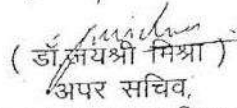 ( डॉ.जयश्री मिश्रा )
अपर सचिव,